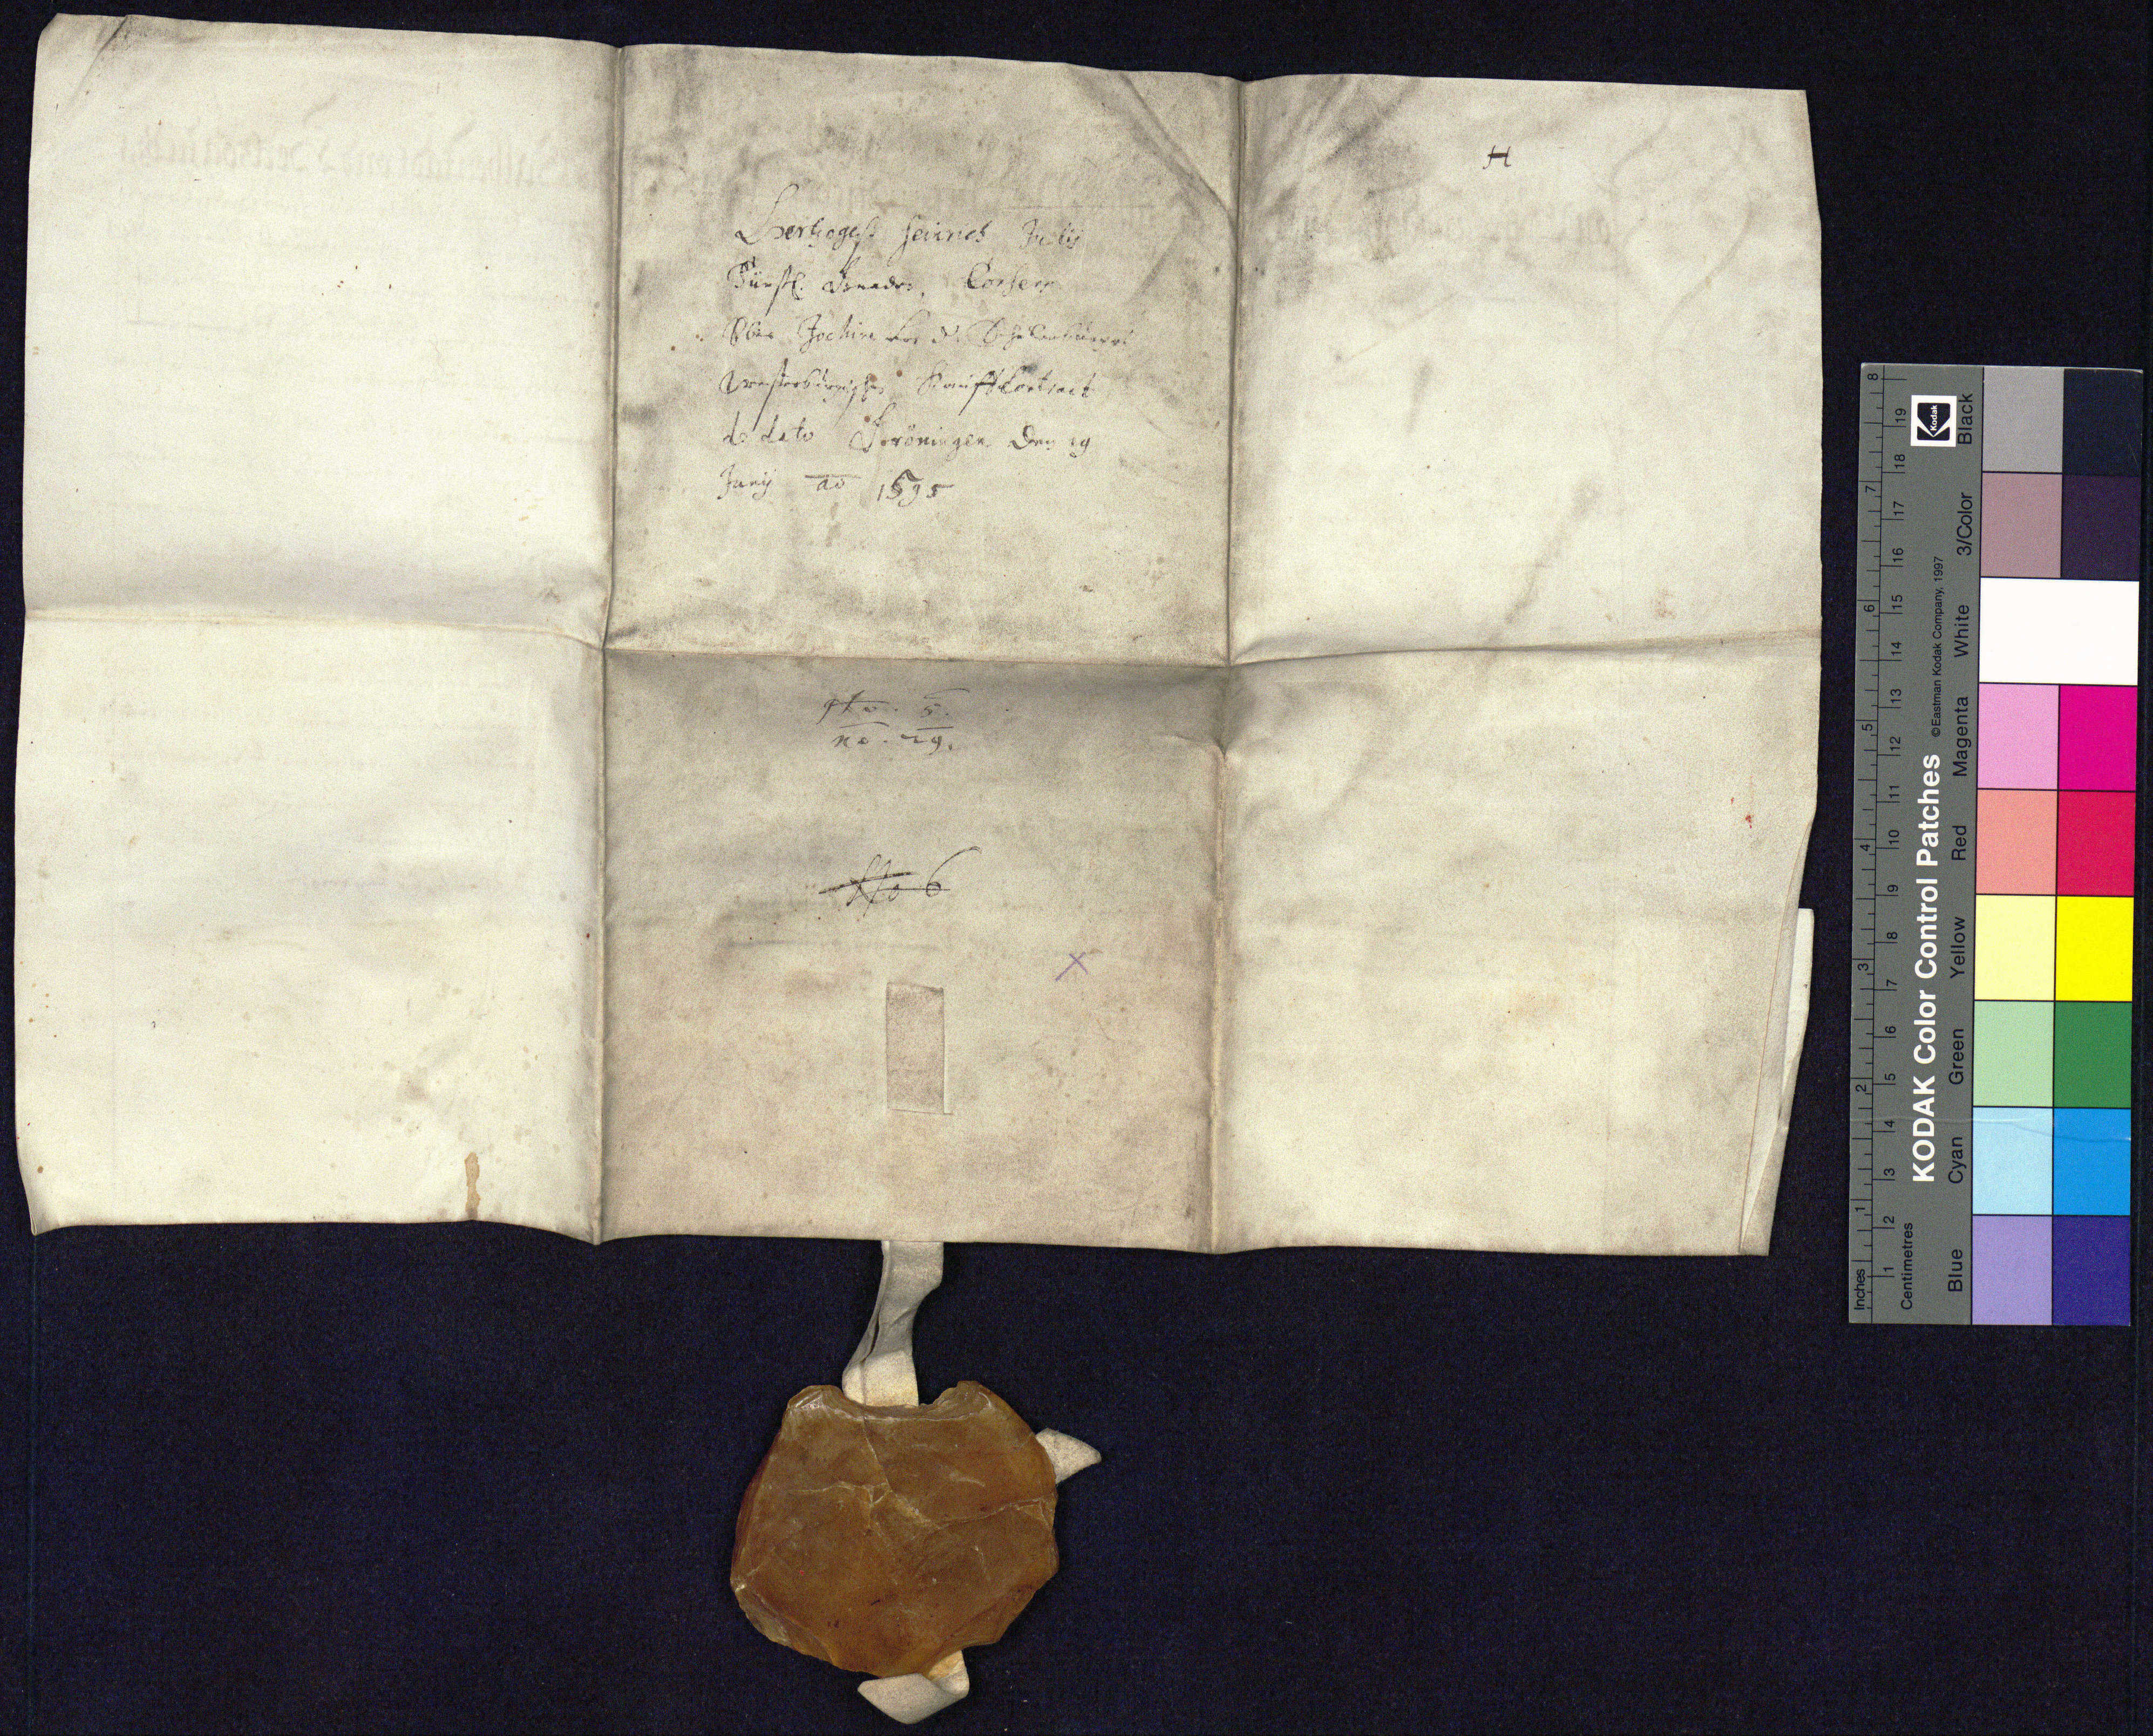 H
Hertzogst Heinrich Julij
Fürstl. Gnaden, Consens
Uber Jochim von d. Schulenburgs
Kauffkontract
de dato Gröningen den 29
Junij ao 1595
no. 29.
No 6
X
KODAK Color Control Patches
©Eastman Kodak Company, 1997
Kodak
Inches 1 2 3 4 5 6 7 8
Centimetres 1 2 3 4 5 6 7 8 9 10 11 12 13 14 15 16 17 18 19
Blue Cyan Green Yellow Red Magenta White 3/Color Black